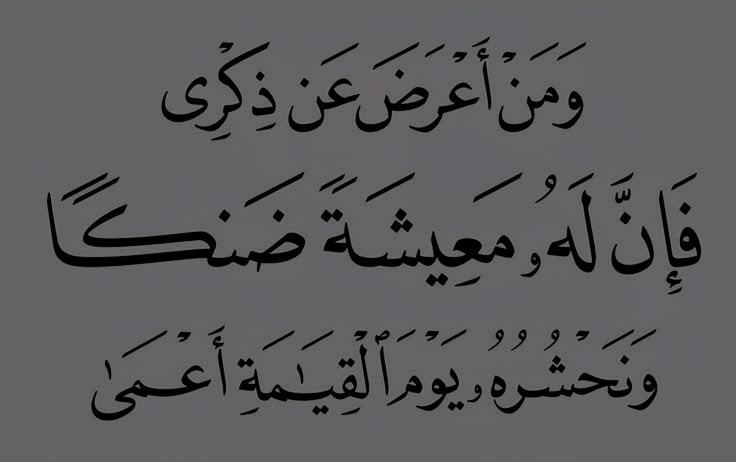 وَمَنْ أَعْرَضَ عَن ذِكْرِى
فَإِنَّ لَهُۥ مَعِيشَةً ضَنكًا
وَنَحْشُرُهُۥ يَوْمَ ٱلْقِيَـٰمَةِ أَعْمَىٰ